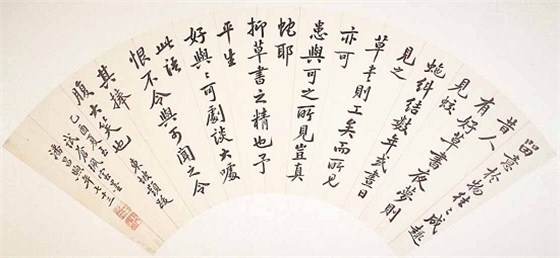 留意於物往〻成趣
昔人
有好草書夜夢則
見蛟
蛇糾結數年或晝日
見之
草書則工矣而所見
亦可
患與可之所見豈真
蛇耶
抑草書之精也予
平生
好與〻可劇談大噱
此語
恨不令與可聞之令
其捧
腹大笑也
東坡題跋
乙酉夏
潘昌煦年七十三